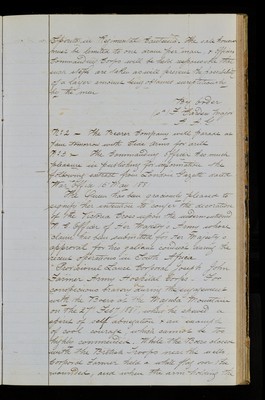 must be limited to one
Commanding Corps will be held responsible that
such steps are taken as will prevent the
of a larger amount being
by the men.
By order
Major
The Bearer Company will parade as
with their Arms for drill
The Commanding Officer has much
pleasure in publishing for information the
following extract from London Gazette dated
War Office 16 May 1881
The Queen has been graciously pleased to
signify her intention to confer the decoration
of the Victoria Cross upon the undermentioned
N. C. Officer of Her Majesty's Army whose
claim has been submitted for Her Majesty's
approval for his gallant conduct during the
recent operations in South Africa.
Provisional Lance Corporal Joseph John
Farmer Army Hospital Corps For
conspicuous bravery during the engagement
with the Boers at the Majuba Mountain
on the 27th Feby 1881, when he showed a
spirit of self abnegation & an example
of cool courage which cannot be too
highly commended. While the Boers closed
with the British Troops near the wells
Corporal Farmer held a white flag over the
wounded, and when the arm holding the